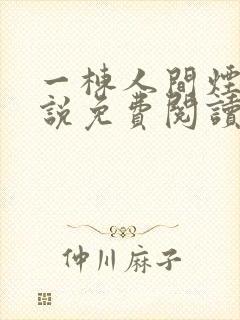 一棟人間煙
說免費閱讀
仲川麻子